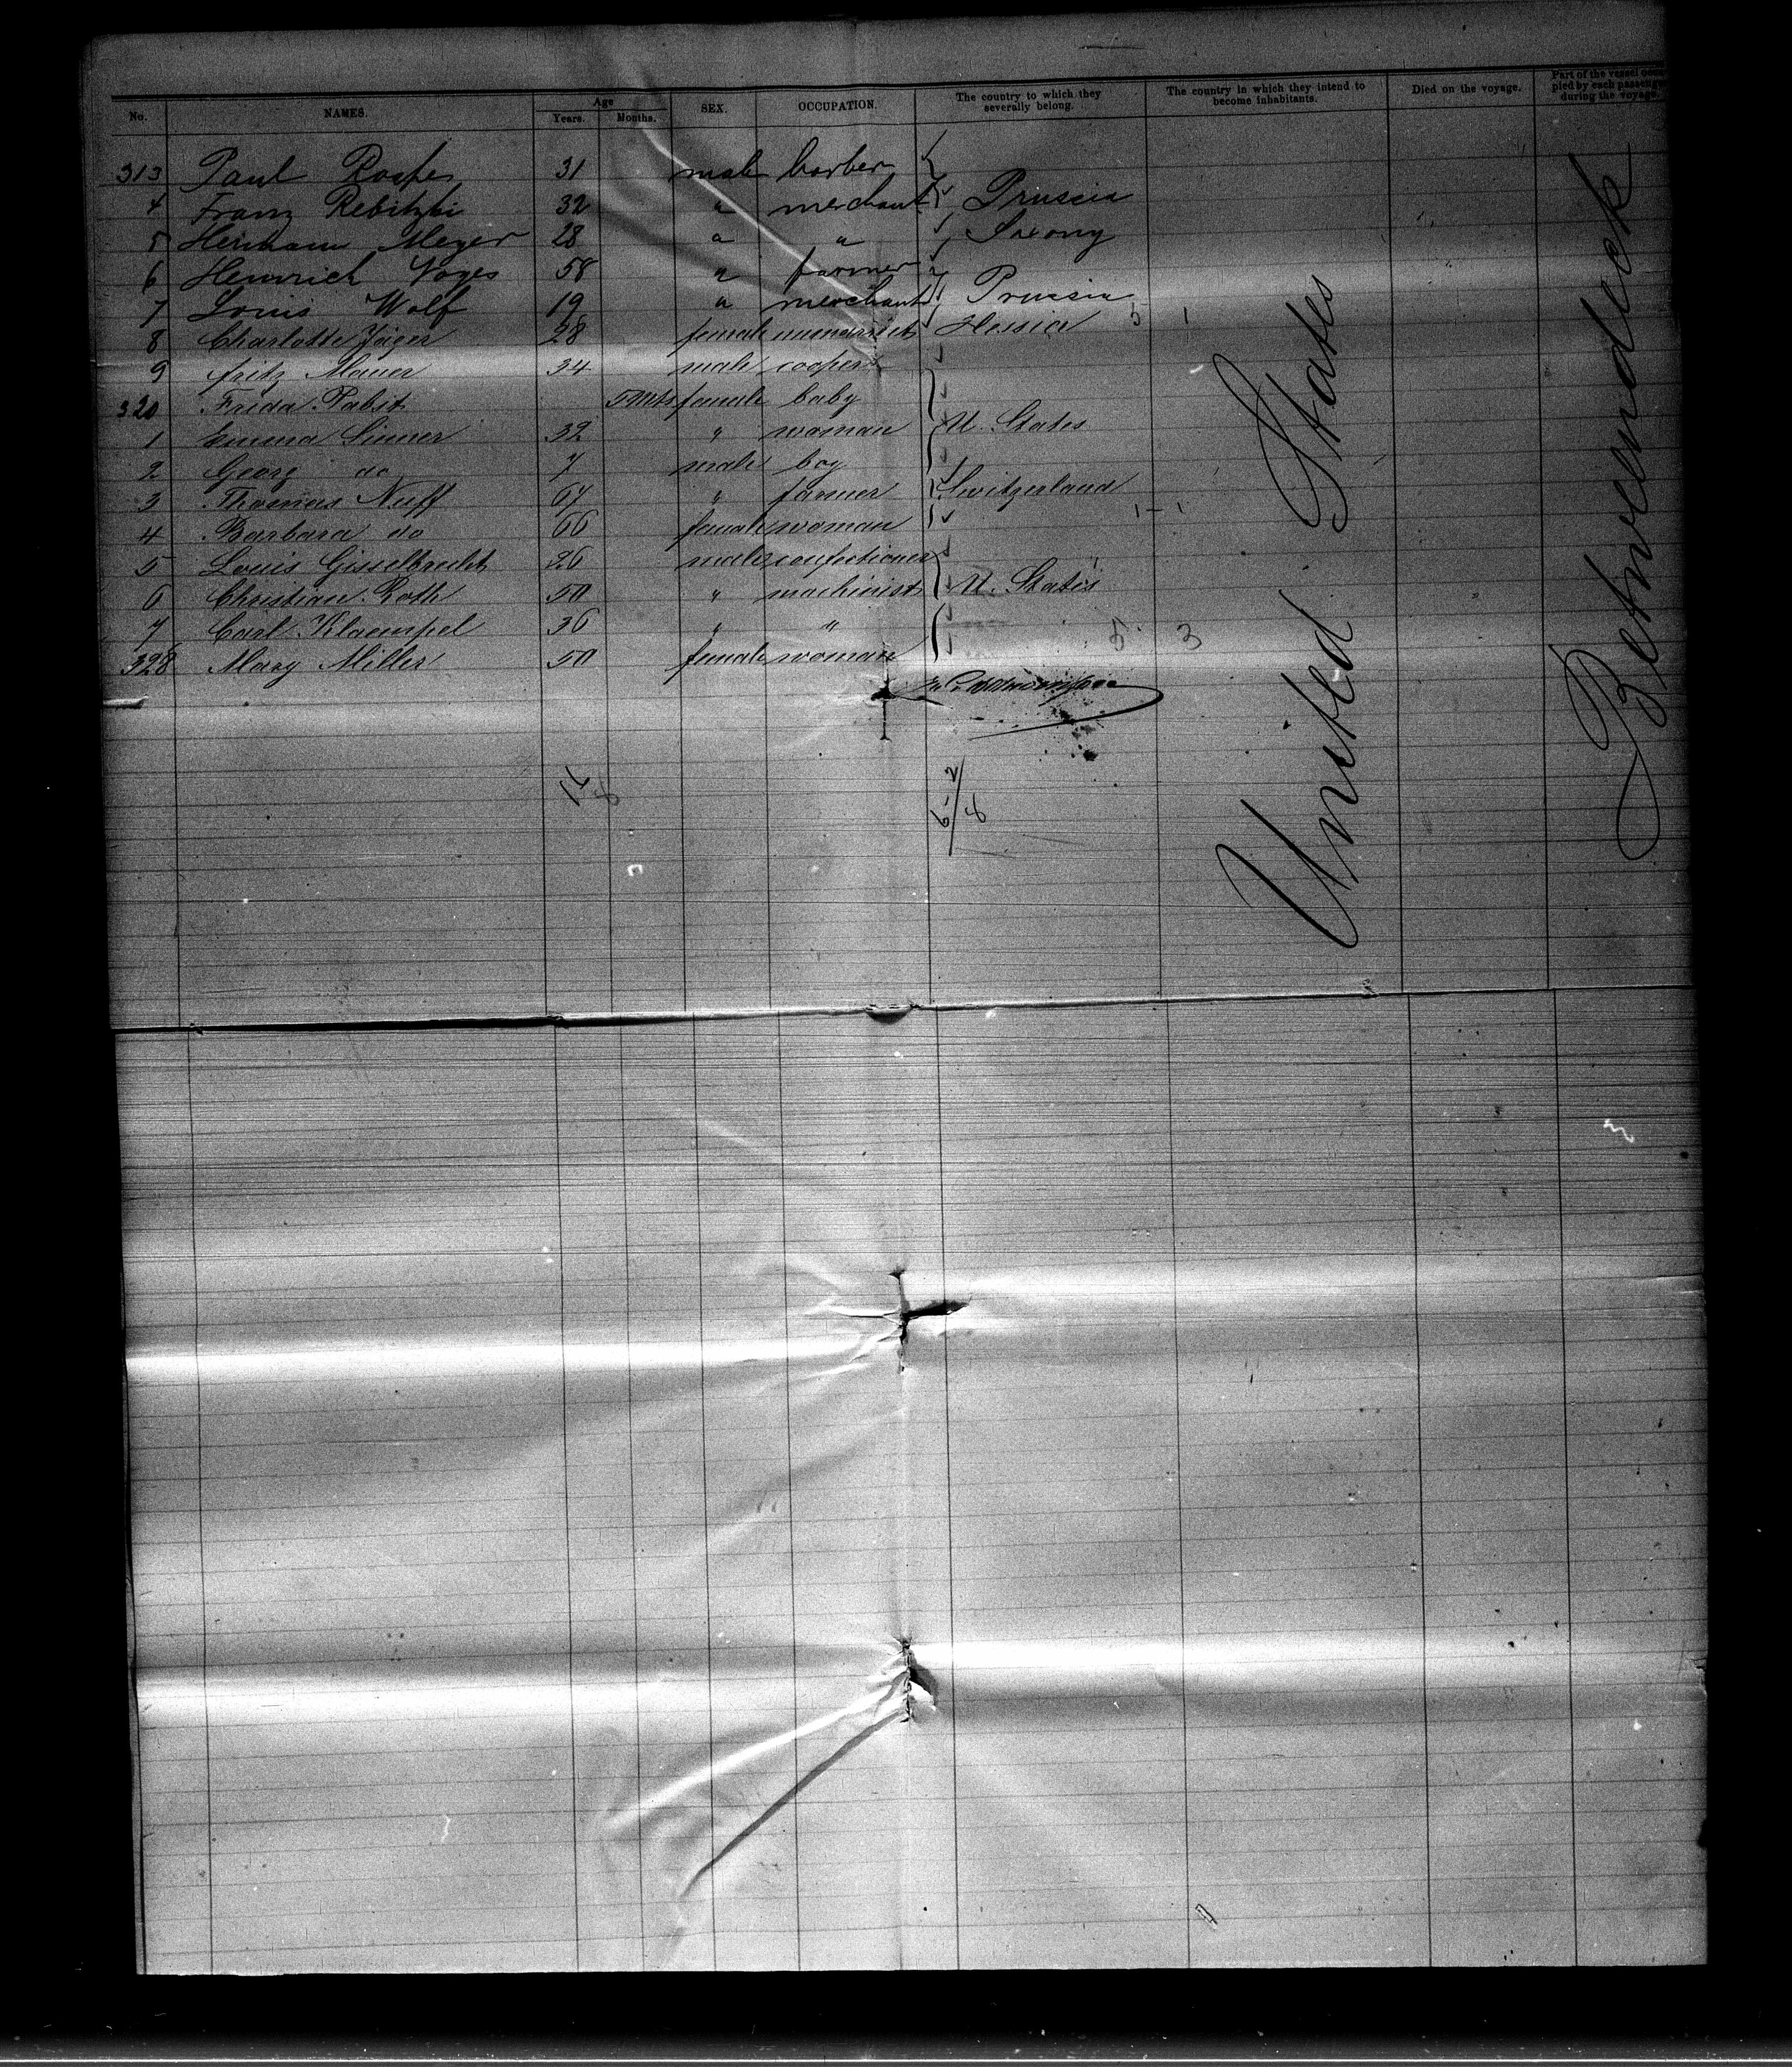 No. NAMES. Age Years. Months. SEX. OCCUPATION. The country to which they severally belong. The country in which they intend to become inhabitants. Died on the voyage. Part of the vessel occupied by each passenger during the voyage.
313 Paul 31 male barber
4 Franz Rebitzki 32 " merchant Prussia
5 Hermann Meyer 28 " " Saxony
6 Heinrich Voges 58 " farmer
7 Louis Wolf 19 " merchant Prussia
8 Charlotte Jäger 28 female Hessia 5 1
9 Fritz Mauer 34 male cooper
320 Frida Pabst 5 Mts female baby
1 Emma Sinner 32 " woman U. States
2 Georg do 7 male boy
3 Thomas Nuff 67 " farmer Switzerland
4 Barbara do 66 female woman 1 - 1
5 Louis Gisselbrecht 26 male confectioner
6 Christian Roth 50 " machinist U. States
7 Carl Klaempel 36 " "
5 3
328 Mary Miller 50 female woman
United States
Betweendeck